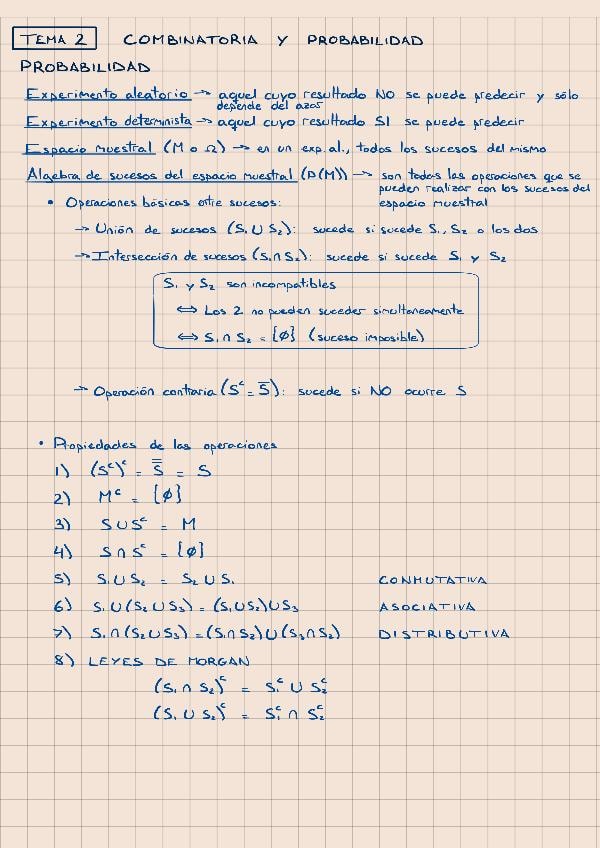 TEMA 2 COMBINATORIA Y PROBABILIDAD
PROBABILIDAD
Experimento aleatorio → aquel cuyo resultado NO se puede predecir y sólo
depende del azar
Experimento determinista → aquel cuyo resultado SI se puede predecir
Espacio muestral (M o Ω) → en un exp. al., todos los sucesos del mismo
Algebra de sucesos del espacio muestral (P(M)) → son todas las operaciones que se
pueden realizar con los sucesos del
espacio muestral
• Operaciones básicas entre sucesos:
→ Unión de sucesos (S₁ ∪ S₂): sucede si sucede S₁, S₂ o los dos
→ Intersección de sucesos (S₁ ∩ S₂): sucede si sucede S₁ y S₂
S₁ y S₂ son incompatibles
⇔ Los 2 no pueden suceder simultaneamente
⇔ S₁ ∩ S₂ = {∅} (suceso imposible)
→ Operación contraria (Sᶜ = S̅): sucede si NO ocurre S
• Propiedades de las operaciones
1) (Sᶜ)ᶜ = S̿ = S
2) Mᶜ = {∅}
3) S ∪ Sᶜ = M
4) S ∩ Sᶜ = {∅}
5) S₁ ∪ S₂ = S₂ ∪ S₁ CONMUTATIVA
6) S₁ ∪ (S₂ ∪ S₃) = (S₁ ∪ S₂) ∪ S₃ ASOCIATIVA
7) S₁ ∩ (S₂ ∪ S₃) = (S₁ ∩ S₂) ∪ (S₃ ∩ S₂) DISTRIBUTIVA
8) LEYES DE MORGAN
(S₁ ∩ S₂)ᶜ = S₁ᶜ ∪ S₂ᶜ
(S₁ ∪ S₂)ᶜ = S₁ᶜ ∩ S₂ᶜ